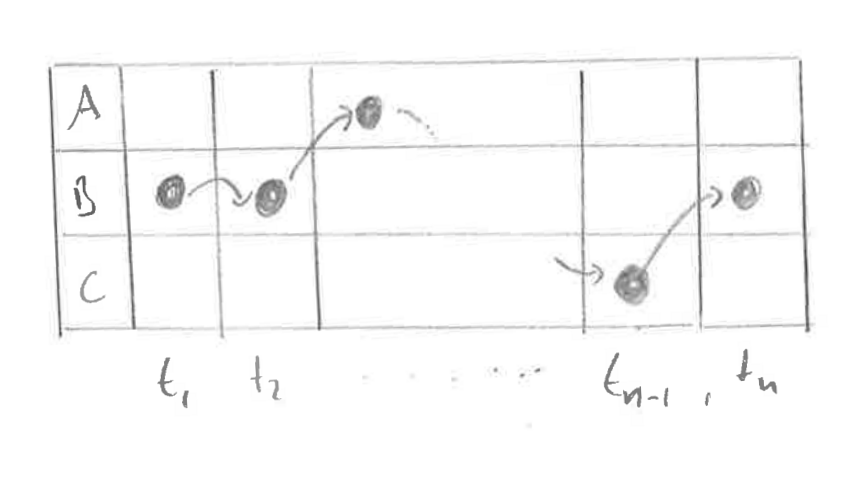 A
B
C
t₁ t₂ . . . . . . . tₙ₋₁ , tₙ